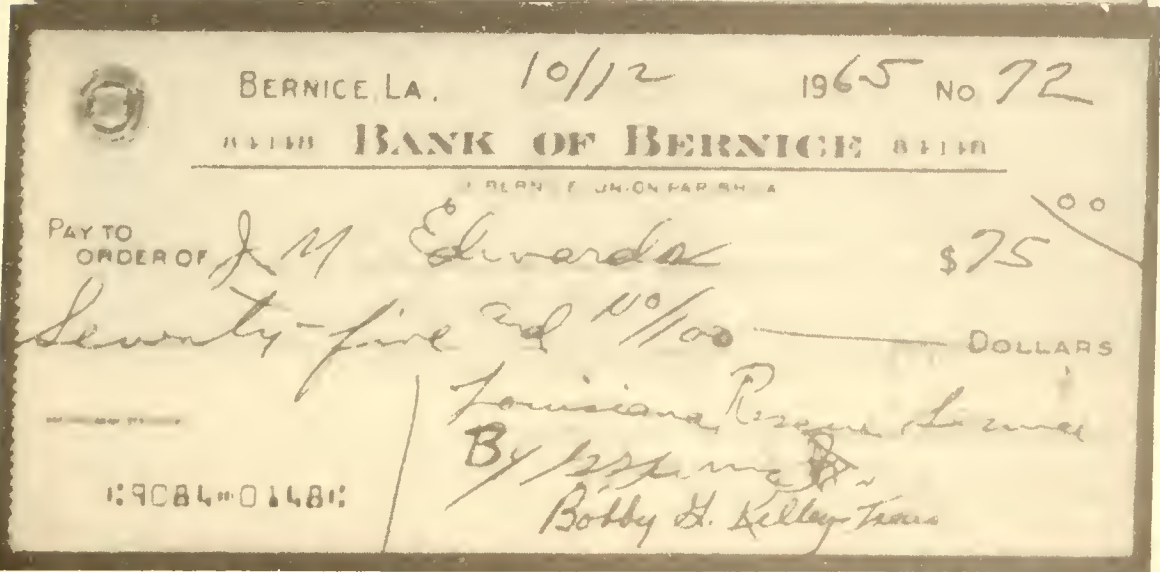 BERNICE, LA. 10/12 1965 No 72
84-148 BANK OF BERNICE 84-148
BERNICE UNION PARISH LA
PAY TO ORDER OF J M Edwards $75 00
Seventy-five and no/100 DOLLARS
Louisiana Rescue Service
By
Bobby G. Kelley Treas
⑆9084⑈0148⑆